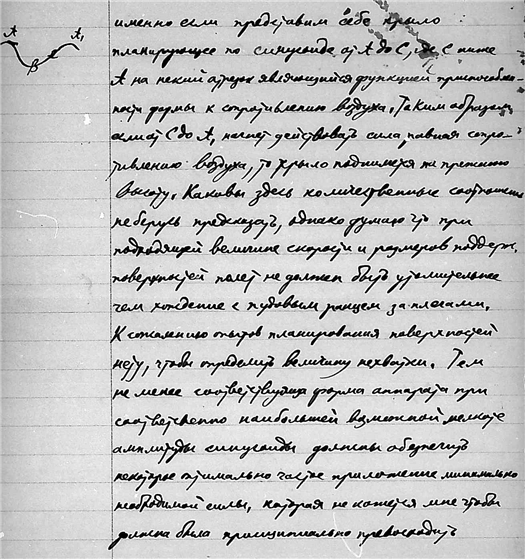 A A₁
B C
именно если представим себе крыло
планирующее по синусоиде от А до С, где С ниже
А на некий отрезок являющийся функцией приспособлен-
ности формы к сопротивлению воздуха. Таким образом
если от С до А₁ начнет действовать сила, равная сопро-
тивлению воздуха, то крыло поднимется на прежнюю
высоту. Каковы здесь количественные соотношения
не берусь предсказать, однако думаю что при
подходящей величине скорости и размеров поддерж.
поверхностей полет не должен быть утомительнее
чем хождение с пудовым ранцем за плечами.
К сожалению опытов планирования поверхностей
нету, чтобы определить величину нехватки. Тем
не менее соответствующая форма аппарата при
соответственно наибольшей возможной мелкоте
амплитуды синусоиды должны обеспечить
некоторое оптимально частое приложение минимально
необходимой силы, которая не кажется мне чтобы
должна была принципиально превосходить